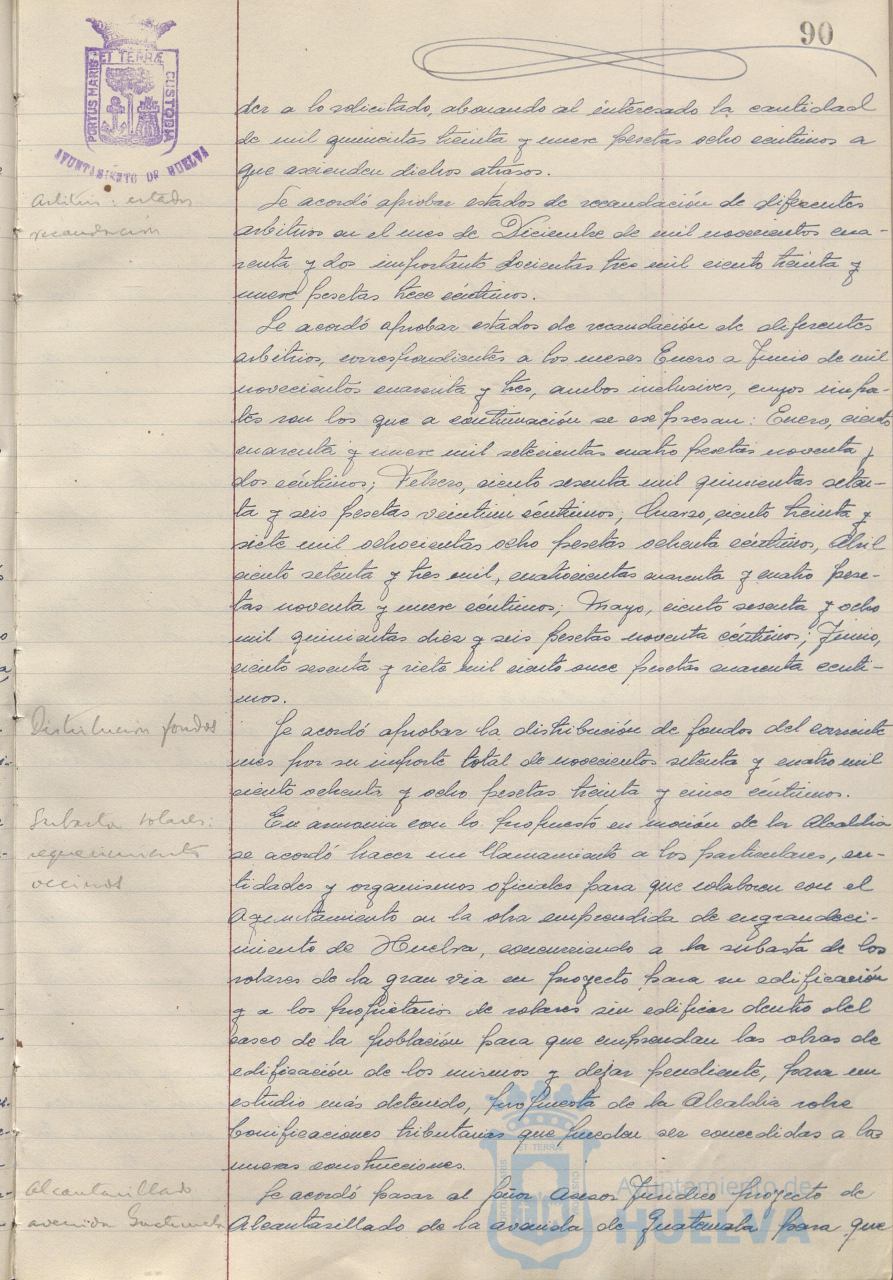 90
PORTUS MARIS ET TERRÆ CUSTODIA
AYUNTAMIENTO DE HUELVA
der a lo solicitado, abonando al interesado la cantidad
de mil quinientas treinta y nueve pesetas ocho céntimos a
que ascienden dichos atrasos.
Arbitrios: estados
recaudación
Se acordó aprobar estados de recaudación de diferentes
arbitrios en el mes de Diciembre de mil novecientos cua-
renta y dos importante doscientas tres mil ciento treinta y
nueve pesetas trece céntimos.
Se acordó aprobar estados de recaudación de diferentes
arbitrios, correspondientes a los meses Enero a Junio de mil
novecientos cuarenta y tres, ambos inclusives, cuyos impor-
tes son los que a continuación se expresan: Enero, ciento
cuarenta y nueve mil setecientas cuatro pesetas noventa y
dos céntimos; Febrero, ciento sesenta mil quinientas seten-
ta y seis pesetas veintiun céntimos; Marzo, ciento treinta y
siete mil ochocientas ocho pesetas ochenta céntimos, Abril
ciento setenta y tres mil, cuatrocientas cuarenta y cuatro pese-
tas noventa y nueve céntimos; Mayo, ciento sesenta y ocho
mil quinientas diez y seis pesetas noventa céntimos; Junio,
ciento sesenta y siete mil ciento once pesetas cuarenta cénti-
mos.
Distribucion fondos
Se acordó aprobar la distribución de fondos del corriente
mes por su importe total de novecientos setenta y cuatro mil
ciento ochenta y ocho pesetas treinta y cinco céntimos.
Subasta solares:
requerimiento
vecinos
En armonia con lo propuesto en moción de la Alcaldia
se acordó hacer un llamamiento a los particulares, en-
tidades y organismos oficiales para que colaboren con el
Ayuntamiento en la obra emprendida de engrandeci-
miento de Huelva, concurriendo a la subasta de los
solares de la gran via en proyecto para su edificación
y a los propietarios de solares sin edificar dentro del
casco de la población para que emprendan las obras de
edificación de los mismos y dejar pendiente, para un
estudio más detenido, propuesta de la Alcaldia sobre
bonificaciones tributarias que puedan ser concedidas a las
nuevas construcciones.
Alcantarillado
avenida Guatemala
Se acordó pasar al Señor Asesor Juridico proyecto de
Alcantarillado de la avenida de Guatemala para que
Ayuntamiento de
HUELVA